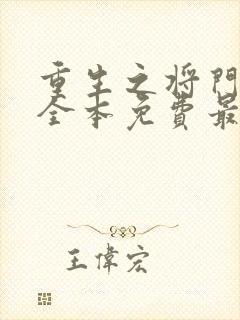 重生之将門
全本免費最
王偉宏